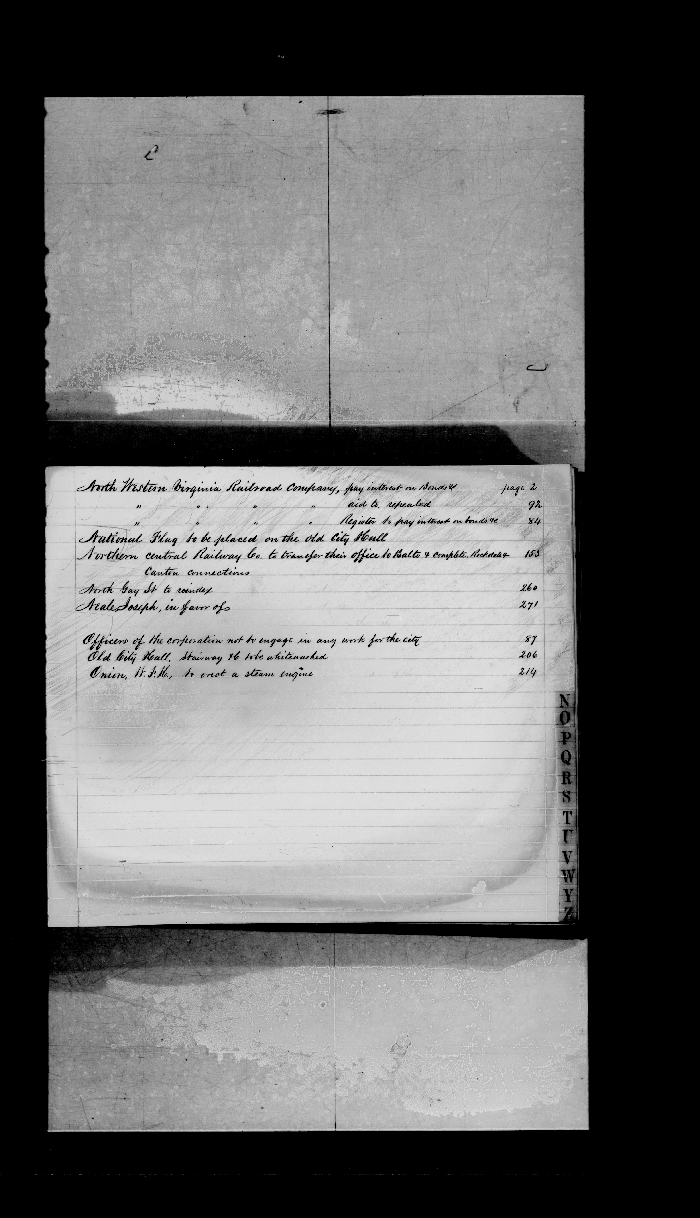 North Western Virginia Railroad Company, pay interest on Bonds &c page 2
" " " " aid to, repealed 92
" " " " Register to pay interest on bonds &c 84
National Flag to be placed on the Old City Hall
Northern central Railway Co. to transfer their office to Balto & complete &c 153
Canton connections
North Gay St to reindex 260
Neale Joseph, in favor of 271
Officers of the corporation not to engage in any work for the city 87
Old City Hall, Stairway &c to be whitewashed 206
Onion, W. F. H., to erect a steam engine 214
N
O
P
Q
R
S
T
U
V
W
Y
Z